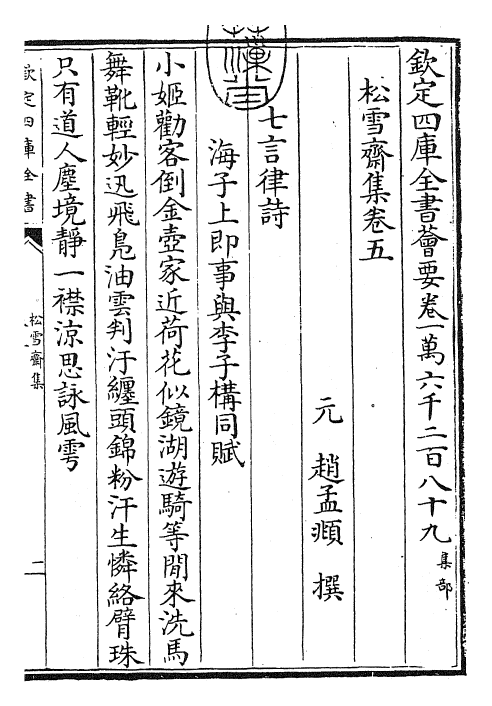 欽定四庫全書薈要卷一萬六千二百八十九集部
松雪齋集卷五
元 趙孟頫 撰
七言律詩
海子上即事與李子構同賦
小姬勸客倒金壺家近荷花似鏡湖遊騎等閒來洗馬
舞靴輕妙迅飛鳧油雲判汙纏頭錦粉汗生憐絡臂珠
只有道人塵境靜一襟涼思詠風雩
欽定四庫全書
松雪齋集
二